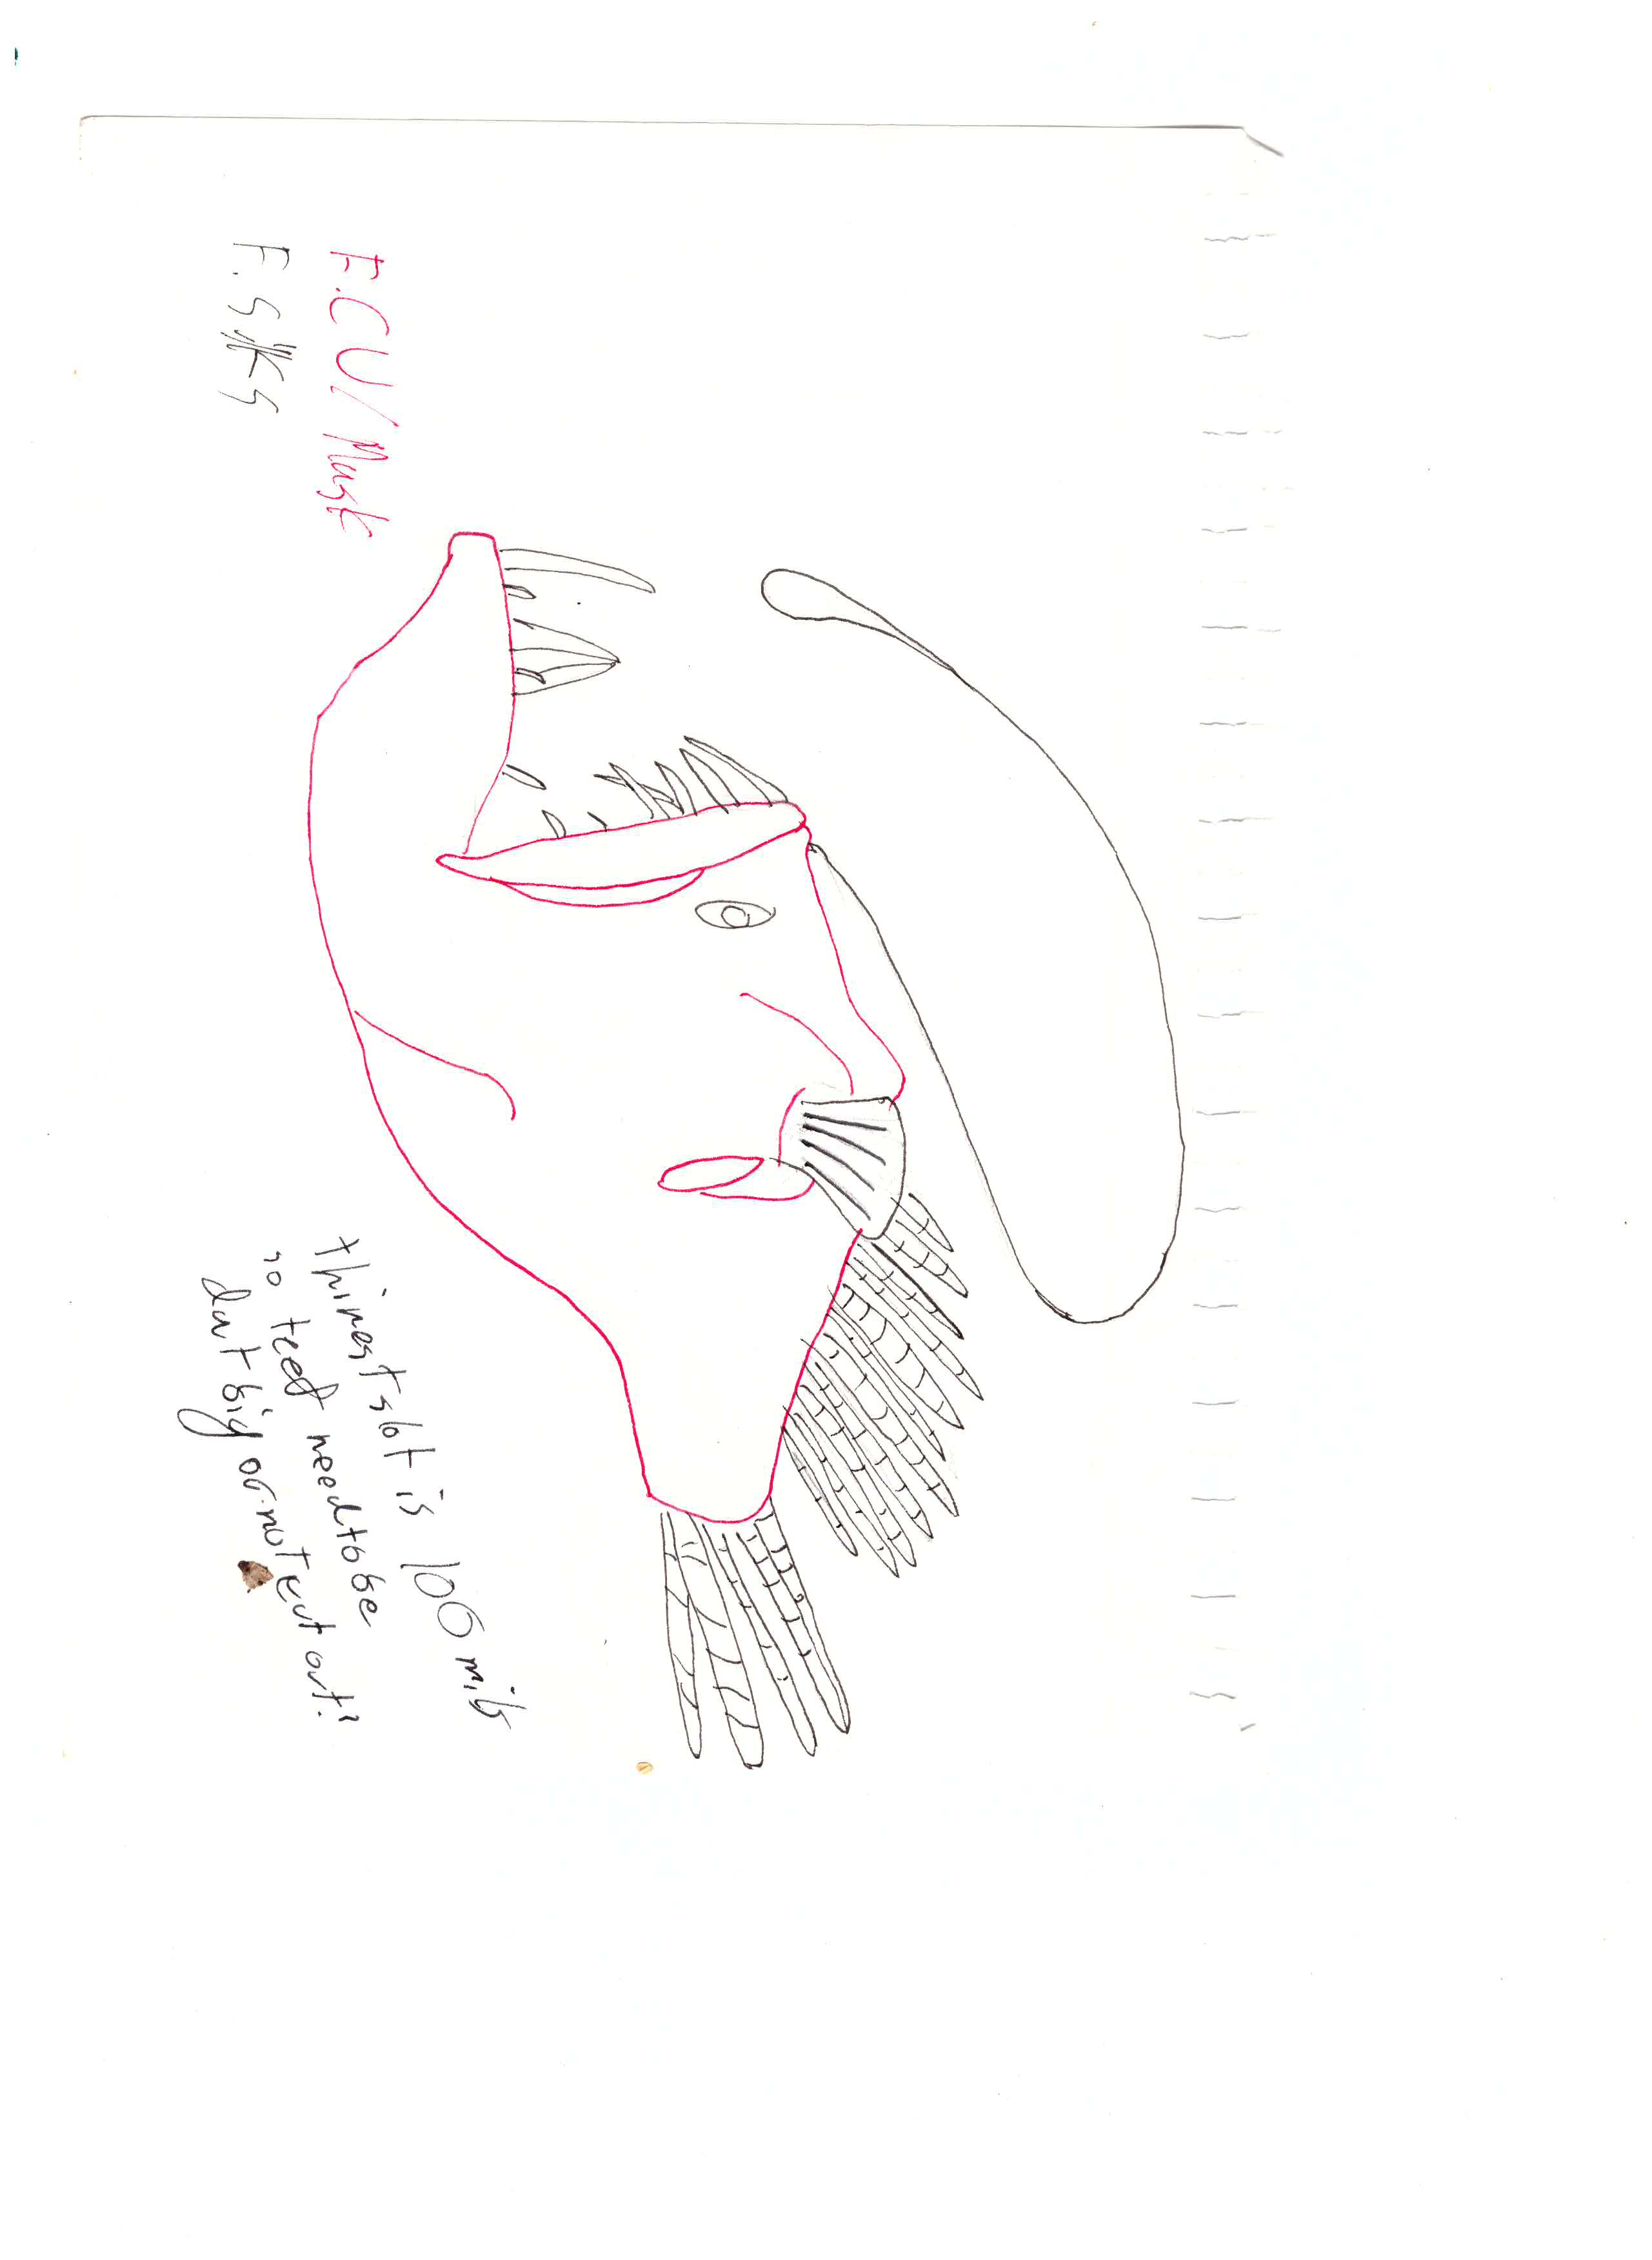 F.CU/Mask
F.SKS
thinest slot is 100 mils
so teeth need to be
but big or not cut out!